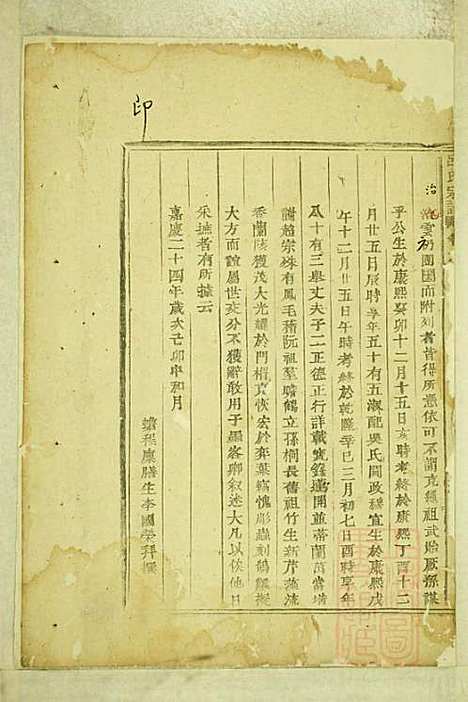 印
治
雲初團團而附刻者皆得所憑依可不謂克繩祖武貽厥孫謀
乎公生於康熙癸卯十二月十五日亥時考終於康熙丁酉十二
月廿五日辰時享年五十有五淑配吳氏閫政穆宜生於康熙戊
午十二月廿五日午時考終於乾隆辛巳三月初七日酉時享年
八十有三舉丈夫子二正德正行詳載寔錄蓮開並蒂蘭茁當堦
譜趙宗殊有鳳毛稽阮祖羣瞻鶴立孫桐長舊祖竹生新芹藻流
香蘭陵獲茂大光耀於門楣真恢宏於奕葉竊愧彫蟲刻鵠難擬
大方而誼屬世友分不獲辭敢用于縣客卿叙述大凡以俟他日
采摭者有所據云
嘉慶二十四年歲次己卯中和月
廩膳生李國榮拜撰